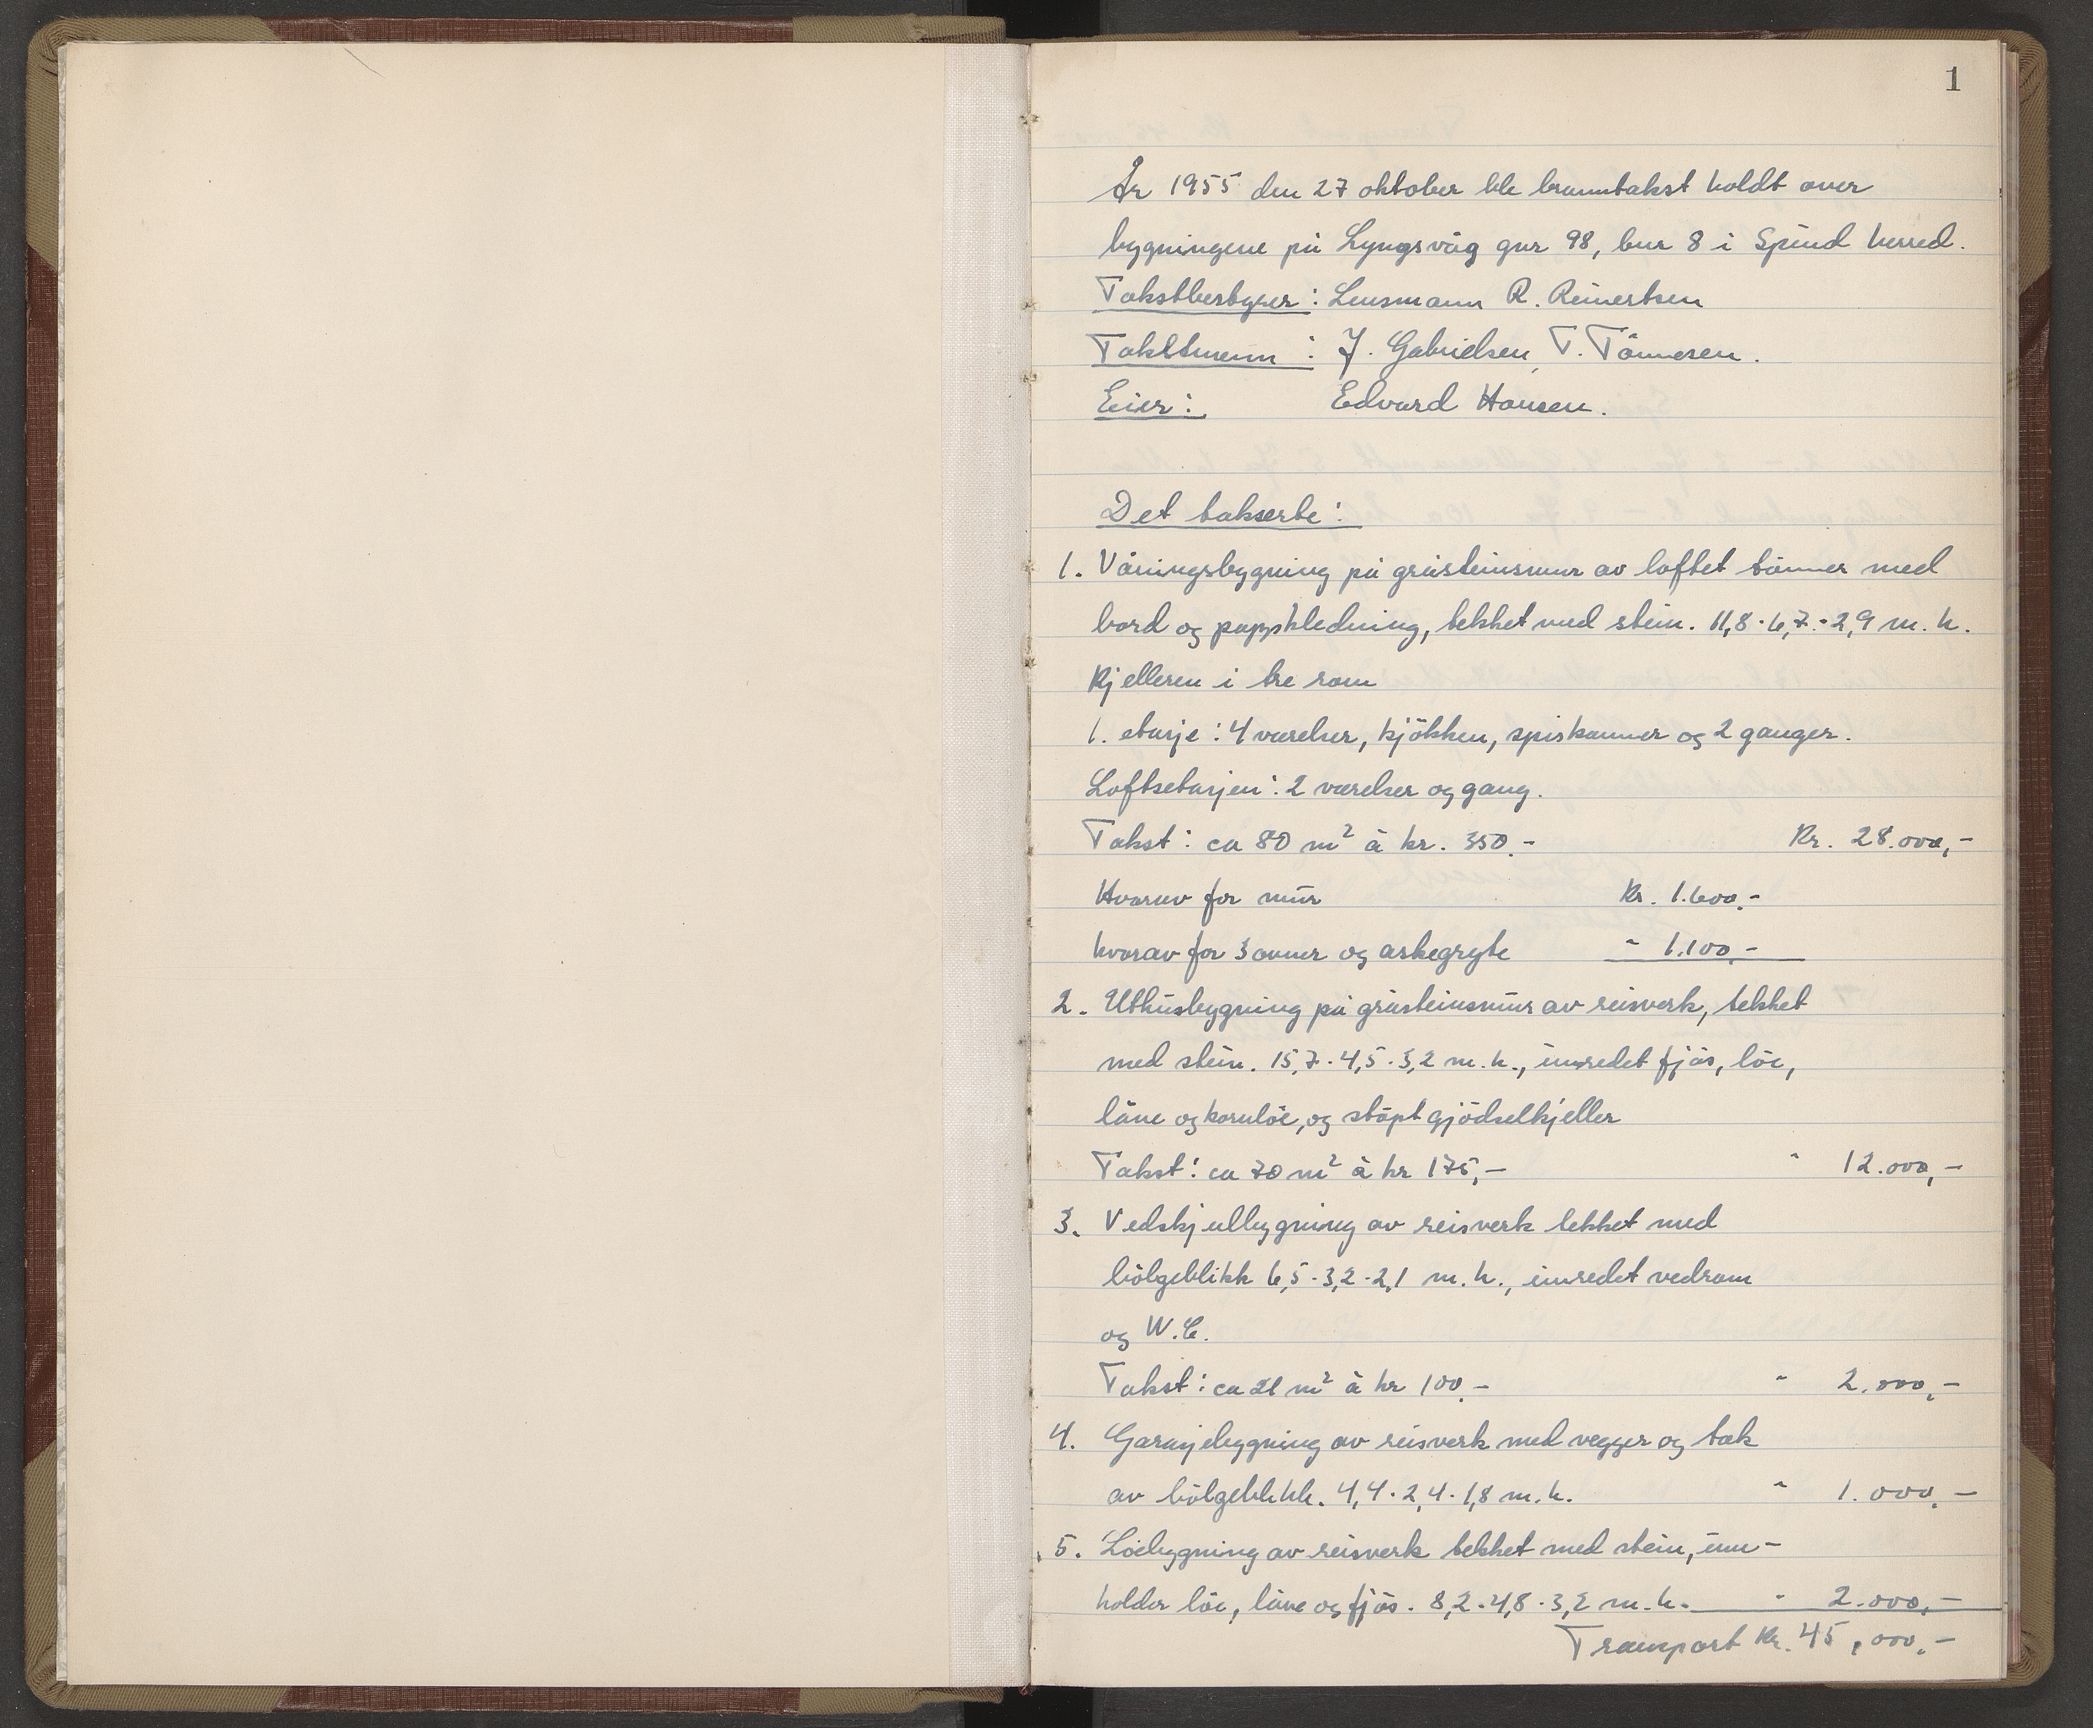 1
År 1955 den 27 oktober ble branntakst holdt over
bygningene på Lyngsvåg gnr 98, bnr 8 i Spind herred.
Takstbestyrer: Lensmann R. Reinertsen
Takstmenn: J. Gabrielsen, T. Tönnesen.
Eier: Edvard Hansen.
Det takserte:
1. Våningsbygning på gråsteinsmur av loftet tömmer med
bord og pappkledning, tekket med stein. 11,8 · 6,7 · 2,9 m. h.
Kjelleren i tre rom
1. etasje: 4 værelser, kjökken, spiskammer og 2 ganger.
Loftsetasjen: 2 værelser og gang.
Takst: ca 80 m² à kr. 350.- Kr. 28.000,-
Hvorav for mur Kr. 1.600.-
hvorav for 3 ovner og askegryte " 1.100,-
2. Uthusbygning på gråsteinsmur av reisverk, tekket
med stein. 15,7 · 4,5 · 3,2 m. h., innredet fjös, löe,
låve og kornlöe, og stöpt gjödselkjeller
Takst: ca 70 m² à kr 175,- " 12.000,-
3. Vedskjulbygning av reisverk tekket med
bölgeblikk 6,5 · 3,2 · 2,1 m. h., innredet vedrom
og W.C.
Takst: ca 21 m² à kr 100.- " 2.000,-
4. Garasjebygning av reisverk med vegger og tak
av bölgeblikk. 4,4 · 2,4 · 1,8 m. h. " 1.000,-
5. Löebygning av reisverk tekket med stein, inne-
holder löe, låve og fjös. 8,2 · 4,8 · 3,2 m. h. " 2.000,-
Transport Kr. 45.000.-